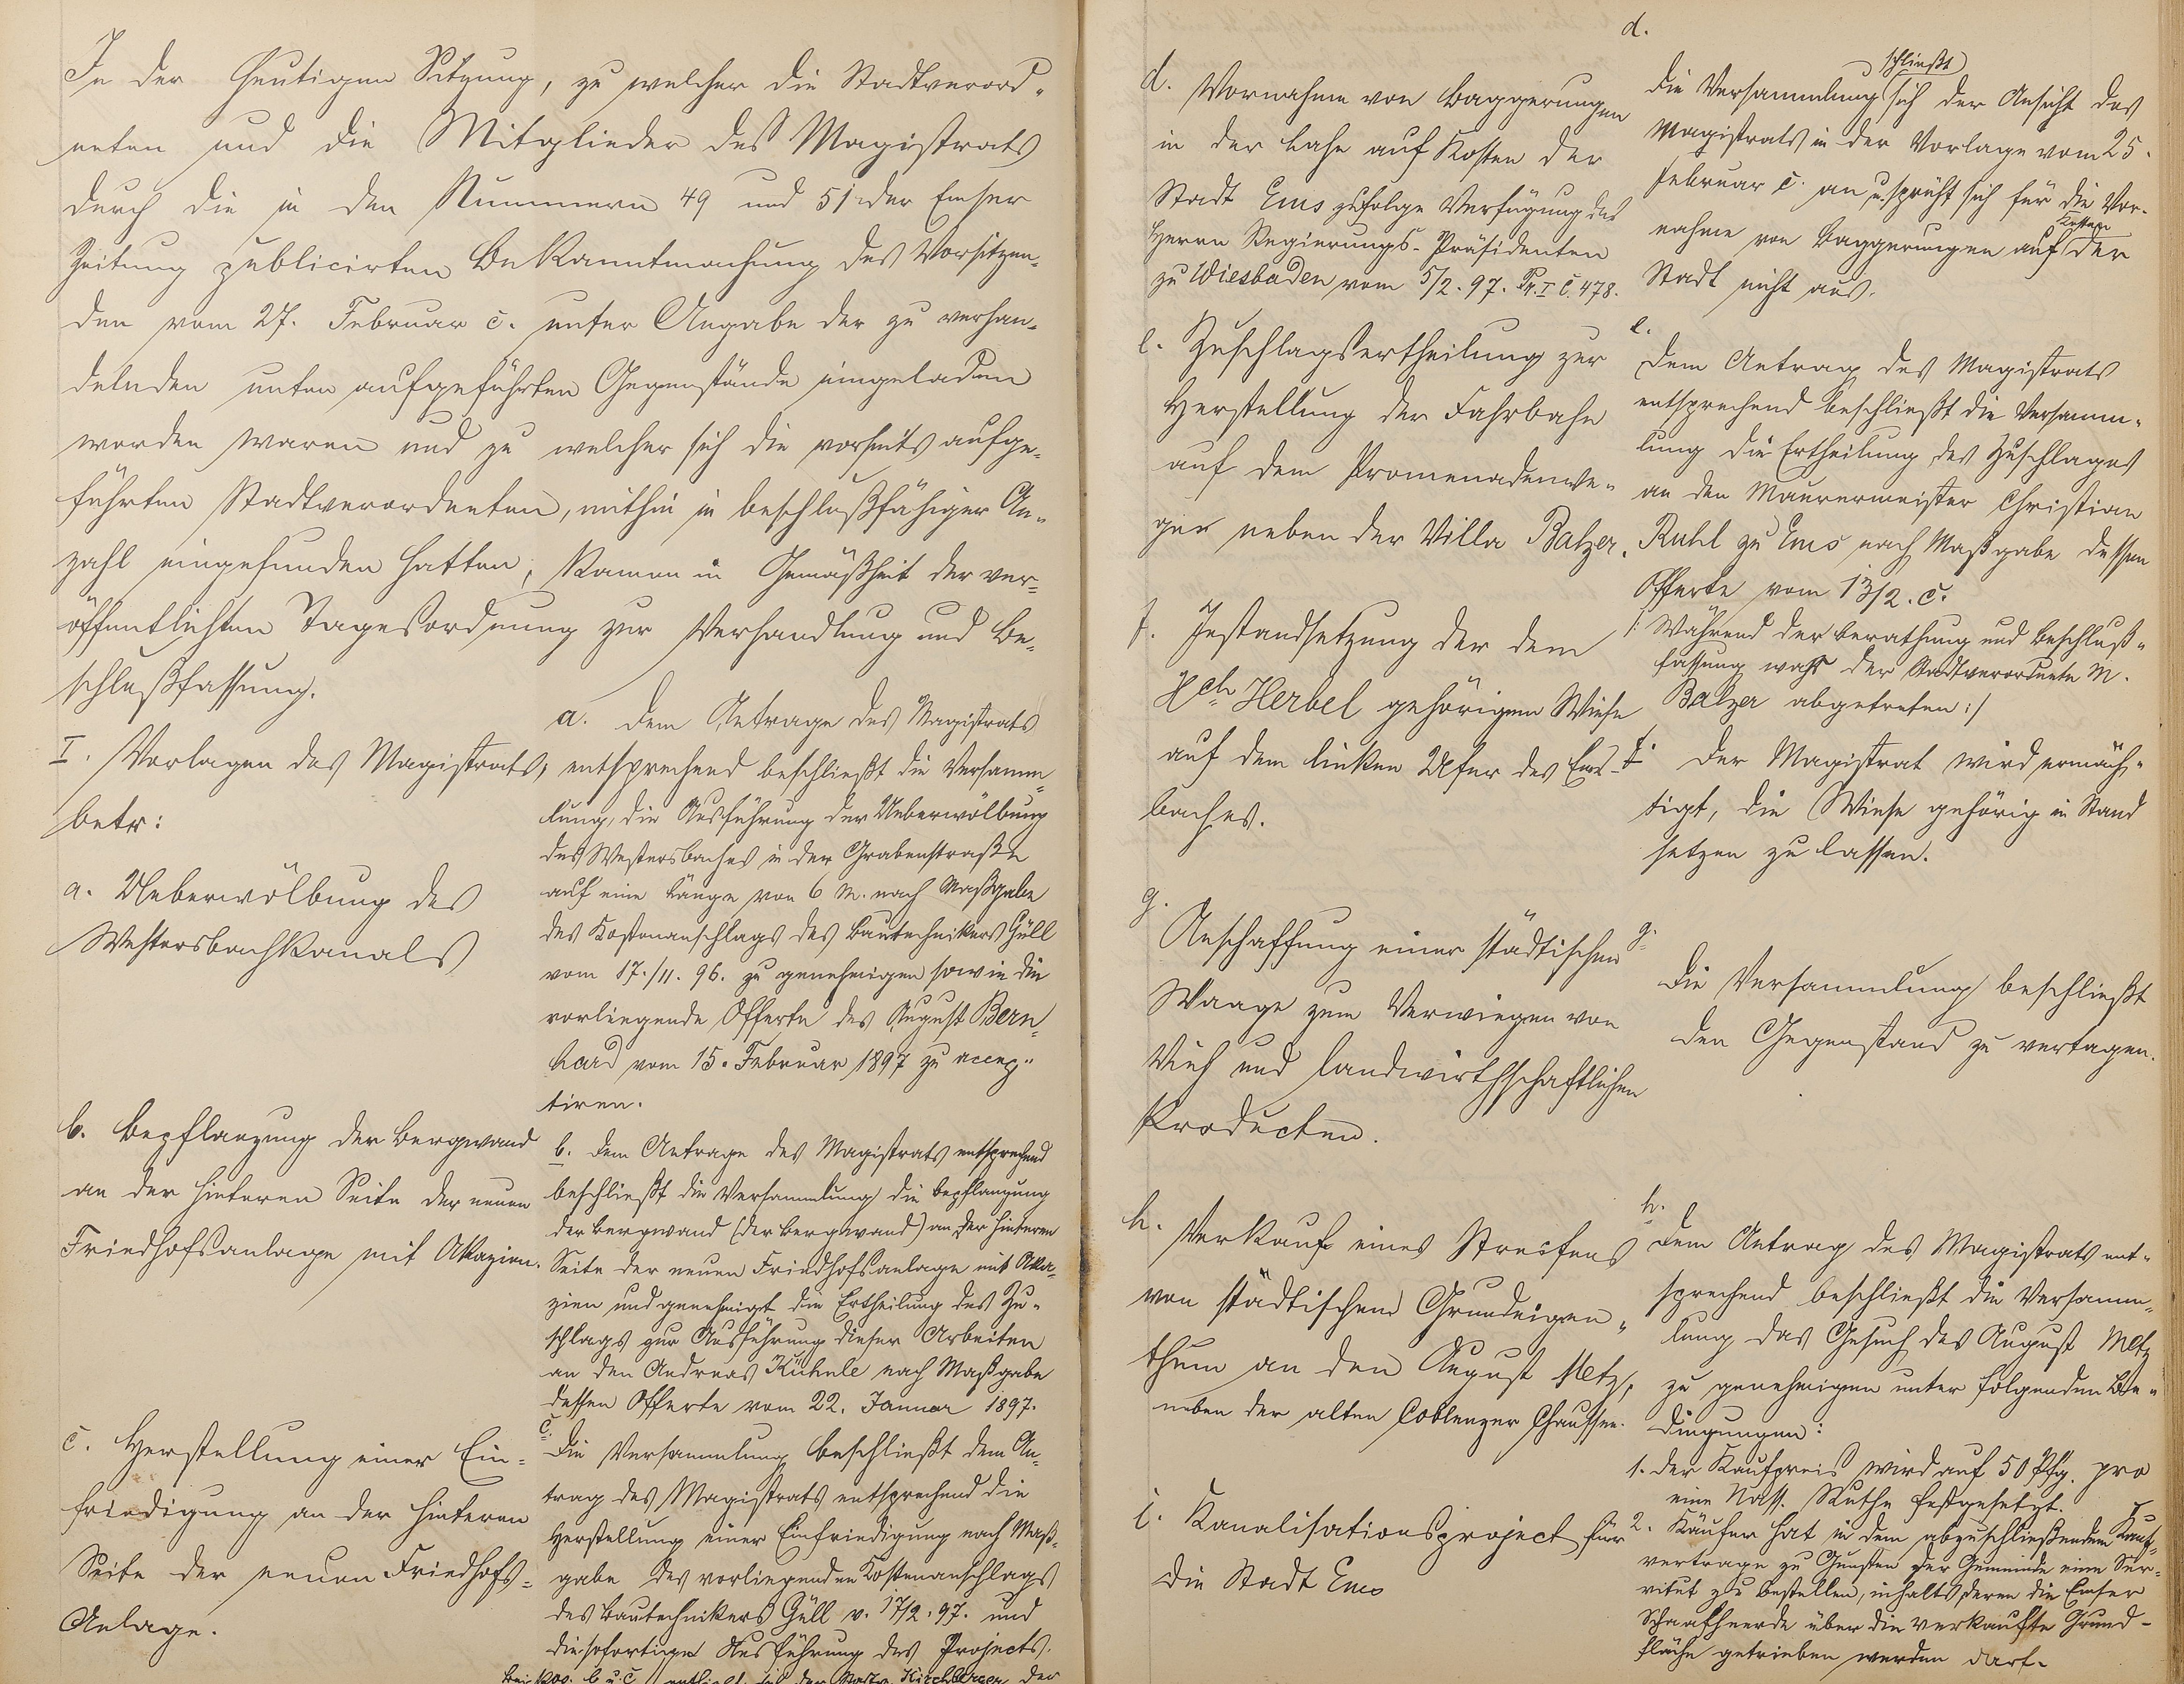 In der heutigen Sitzung, zu welcher die Stadtverord-
neten und die Mitglieder des Magistrats
durch die in den Nummern 49 und 51 der Emser
Zeitung publicirten Bekanntmachung des Vorsitzen-
den vom 27. Februar c. unter Angabe der zu verhan-
delnden unten aufgeführten Gegenstände eingeladen
worden waren und zu welcher sich die vorseits aufge-
führten Stadtverordneten, mithin in beschlußfähiger An-
zahl eingefunden hatten, kamen in Gemäßheit der ver-
öffentlichten Tagesordnung zur Verhandlung und Be-
schlußfassung.
I. Vorlagen des Magistrats,
betr:
a. Ueberwölbung des
Westersbachkanals
a. Dem Antrage des Magistrats
entsprechend beschließt die Versamm-
lung, die Ausführung der Ueberwölbung
des Westersbaches in der Grabenstraße
auf eine Länge von 6 m. nach Maßgabe
des Kostenanschlags des Bautechnikers Güll
vom 17./11. 96. zu genehmigen sowie die
vorliegende Offerte des August Bern-
hard vom 15. Februar 1897 zu accep-
tiren.
b. Bepflanzung der Bergwand
an der hinteren Seite der neuen
Friedhofsanlage mit Akazien.
b. Dem Antrage des Magistrats entsprechend
beschließt die Versammlung die Bepflanzung
der Bergwand (der Bergwand) an der hinteren
Seite der neuen Friedhofsanlage mit Aka-
zien und genehmigt die Ertheilung des Zu-
schlags zur Ausführung dieser Arbeiten
an den Andreas Kühnle nach Maßgabe
dessen Offerte vom 22. Januar 1897.
c. Herstellung einer Ein-
friedigung an der hinteren
Seite der neuen Friedhofs-
Anlage.
c.
Die Versammlung beschließt dem An-
trag des Magistrats entsprechend die
Herstellung einer Einfriedigung nach Maß-
gabe des vorliegenden Kostenanschlags
des Bautechnikers Güll v. 17/2. 97. und
die sofortige Ausführung des Projects.
Bei Pos. b u. c enthielt sich der Stadtv. Kirchberger der
d. Vornahme von Baggerungen
in der Lahn auf Kosten der
Stadt Ems zufolge Verfügung des
Herrn Regierungs-Präsidenten
zu Wiesbaden vom 5/2. 97. Pr. I C. 478.
d.
schließt
Die Versammlung sich der Ansicht des
Magistrats in der Vorlage vom 25.
Februar c. an u. spricht sich für die Vor-
Kosten
nahme von Baggerungen auf der
Stadt nicht aus.
e. Zuschlagsertheilung zur
Herstellung der Fahrbahn
auf dem Promenadenwe-
ge neben der Villa Balzer.
e.
Dem Antrag des Magistrats
entsprechend beschließt die Versamm-
lung die Ertheilung des Zuschlages
an den Maurermeister Christian
Ruhl zu Ems nach Maßgabe dessen
Offerte vom 13/2. c.
/: Während der Berathung und Beschluß-
fassung war der Stadtverordnete M.
Balzer abgetreten :/
f. Instandsetzung der dem
Hch Herbel gehörigen Wiese
auf dem linken Ufer des Ems-
baches.
f. Der Magistrat wird ermäch-
tigt, die Wiese gehörig in Stand
setzen zu lassen.
g.
Anschaffung einer städtischen
Waage zum Verwiegen von
Vieh und landwirthschaftlichen
Producten.
g.
Die Versammlung beschließt
den Gegenstand zu vertagen.
h. Verkauf eines Streifens
von städtischem Grundeigen-
thum an den August Metz,
neben der alten Coblenzer Chaussee.
h.
Dem Antrag des Magistrats ent-
sprechend beschließt die Versamm-
lung das Gesuch des August Metz
zu genehmigen unter folgenden Be-
dingungen:
1. der Kaufpreis wird auf 50 Pfg. pro
eine Nass. Ruthe festgesetzt.
2. Käufer hat in dem abzuschließendem Kauf-
vertrage zu Gunsten der Gemeinde eine Ser-
vitut zu bestellen, inhalts deren die Emser
Schaafheerde über die verkaufte Grund-
fläche getrieben werden darf.
i. Kanalisationsproject für
die Stadt Ems